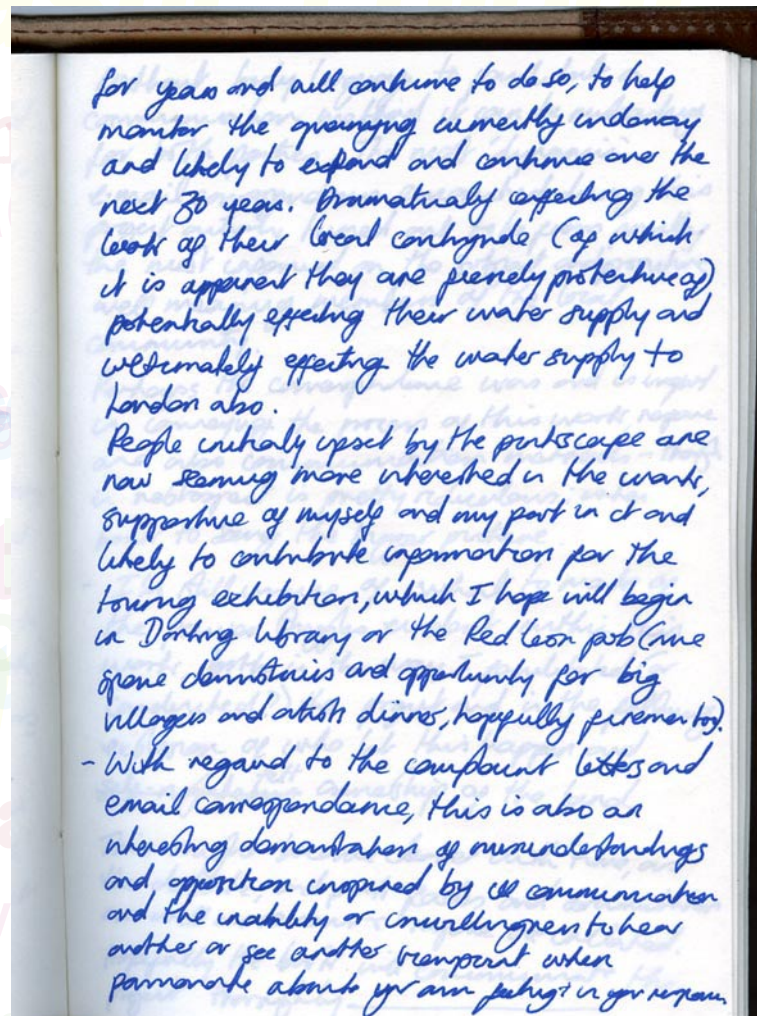 for years and will continue to do so, to help
monitor the quarrying currently underway
and likely to expand and continue over the
next 30 years. Dramaticaly affecting the
look of their local contryside (of which
it is apparent they are fiercely protective of)
potentially effecting their water supply and
ultimately effecting the water supply to
London also.
People initialy upset by the are
now seeming more interested in the work,
supportive of myself and my part in it and
likely to contribute information for the
touring exhibition, which I hope will begin
in Dorking library or the Red Lion pub (nine
and opportunity for big
villagers and artists dinner, hopefully firemen too).
- With regard to the complaint letters and
email correspondance, this is also an
interesting demonstration of misunderstandings
and opposition inspired by ill communication
and the inability or unwillingness to hear
another or see another viewpoint when
passionate about yr own in yr